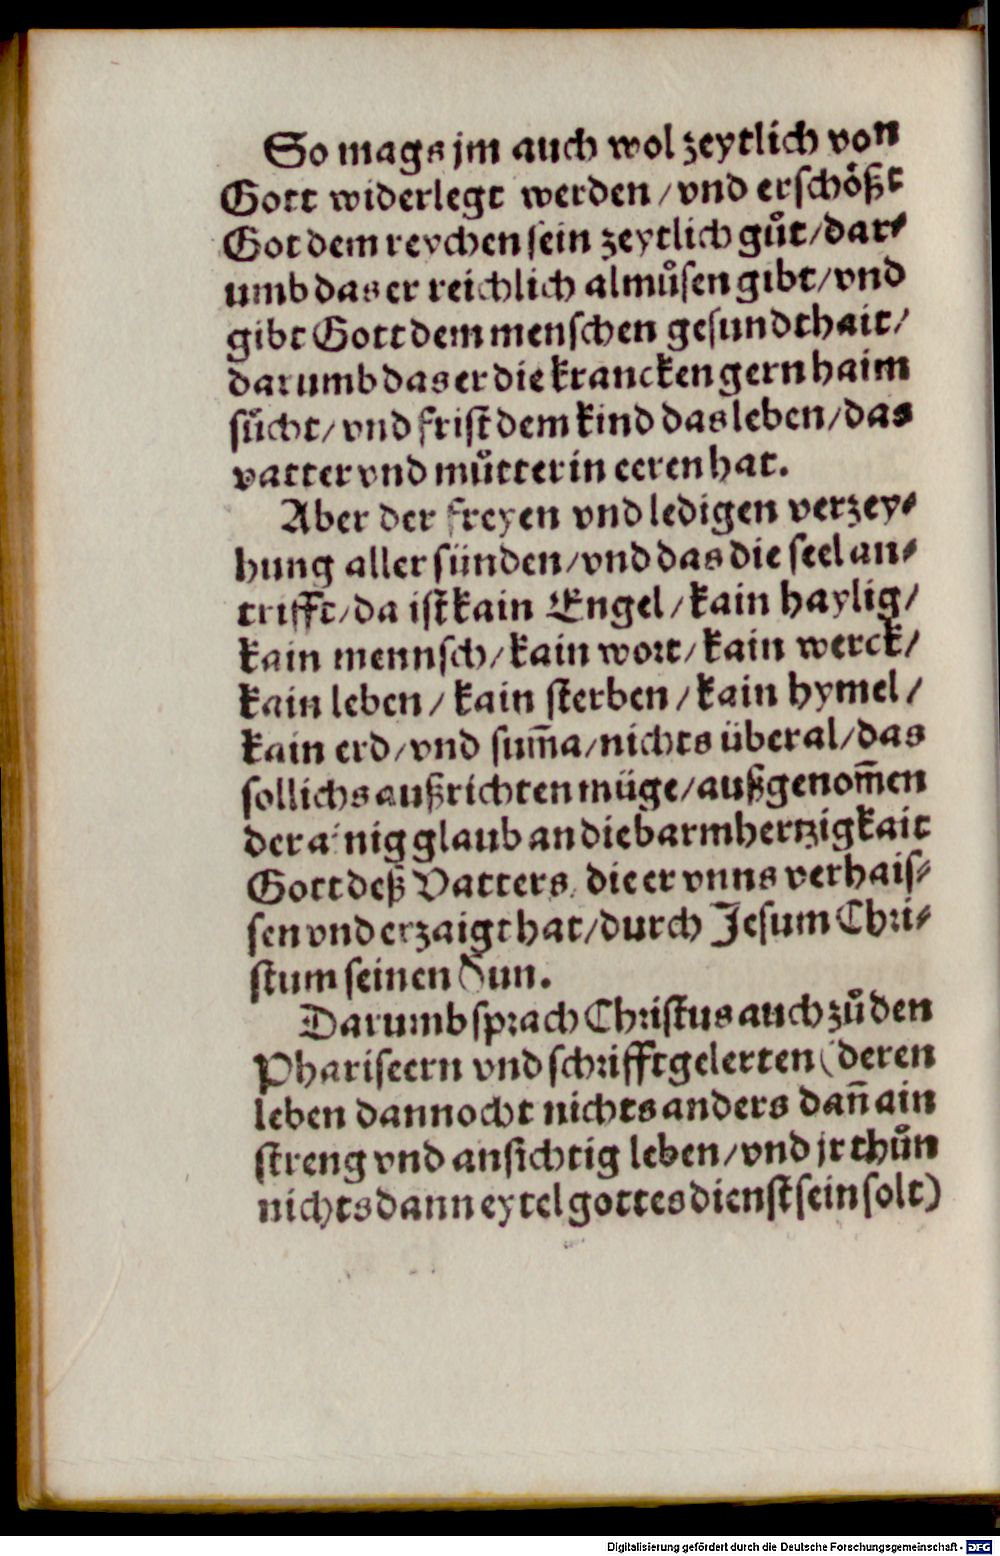 So mags jm auch wol zeytlich von
Gott widerlegt werden / vnd erschößt
Got dem reychen sein zeytlich guͦt / dar⸗
umb das er reichlich almuͦsen gibt / vnd
gibt Gott dem menschen gesundthait /
darumb das er die krancken gern haim
suͦcht / vnd frist dem kind das leben / das
vatter vnd muͦtter in eeren hat.
Aber der freyen vnd ledigen verzey⸗
hung aller sünden / vnd das die seel an⸗
trifft / da ist kain Engel / kain haylig /
kain mennsch / kain wort / kain werck /
kain leben / kain sterben / kain hymel /
kain erd / vnd sum̄a / nichts überal / das
sollichs außrichten müge / außgenom̄en
der ainig glaub an die barmhertzigkait
Gott deß Vatters, die er vnns verhais⸗
sen vnd erzaigt hat / durch Jesum Chri⸗
stum seinen Sun.
Darumb sprach Christus auch zuͦ den
Phariseern vnd schrifftgelerten (deren
leben dannocht nichts anders dan̄ ain
streng vnd ansichtig leben / vnd jr thuͦn
nichts dann eytel gottes dienst sein solt)
Digitalisierung gefördert durch die Deutsche Forschungsgemeinschaft - DFG